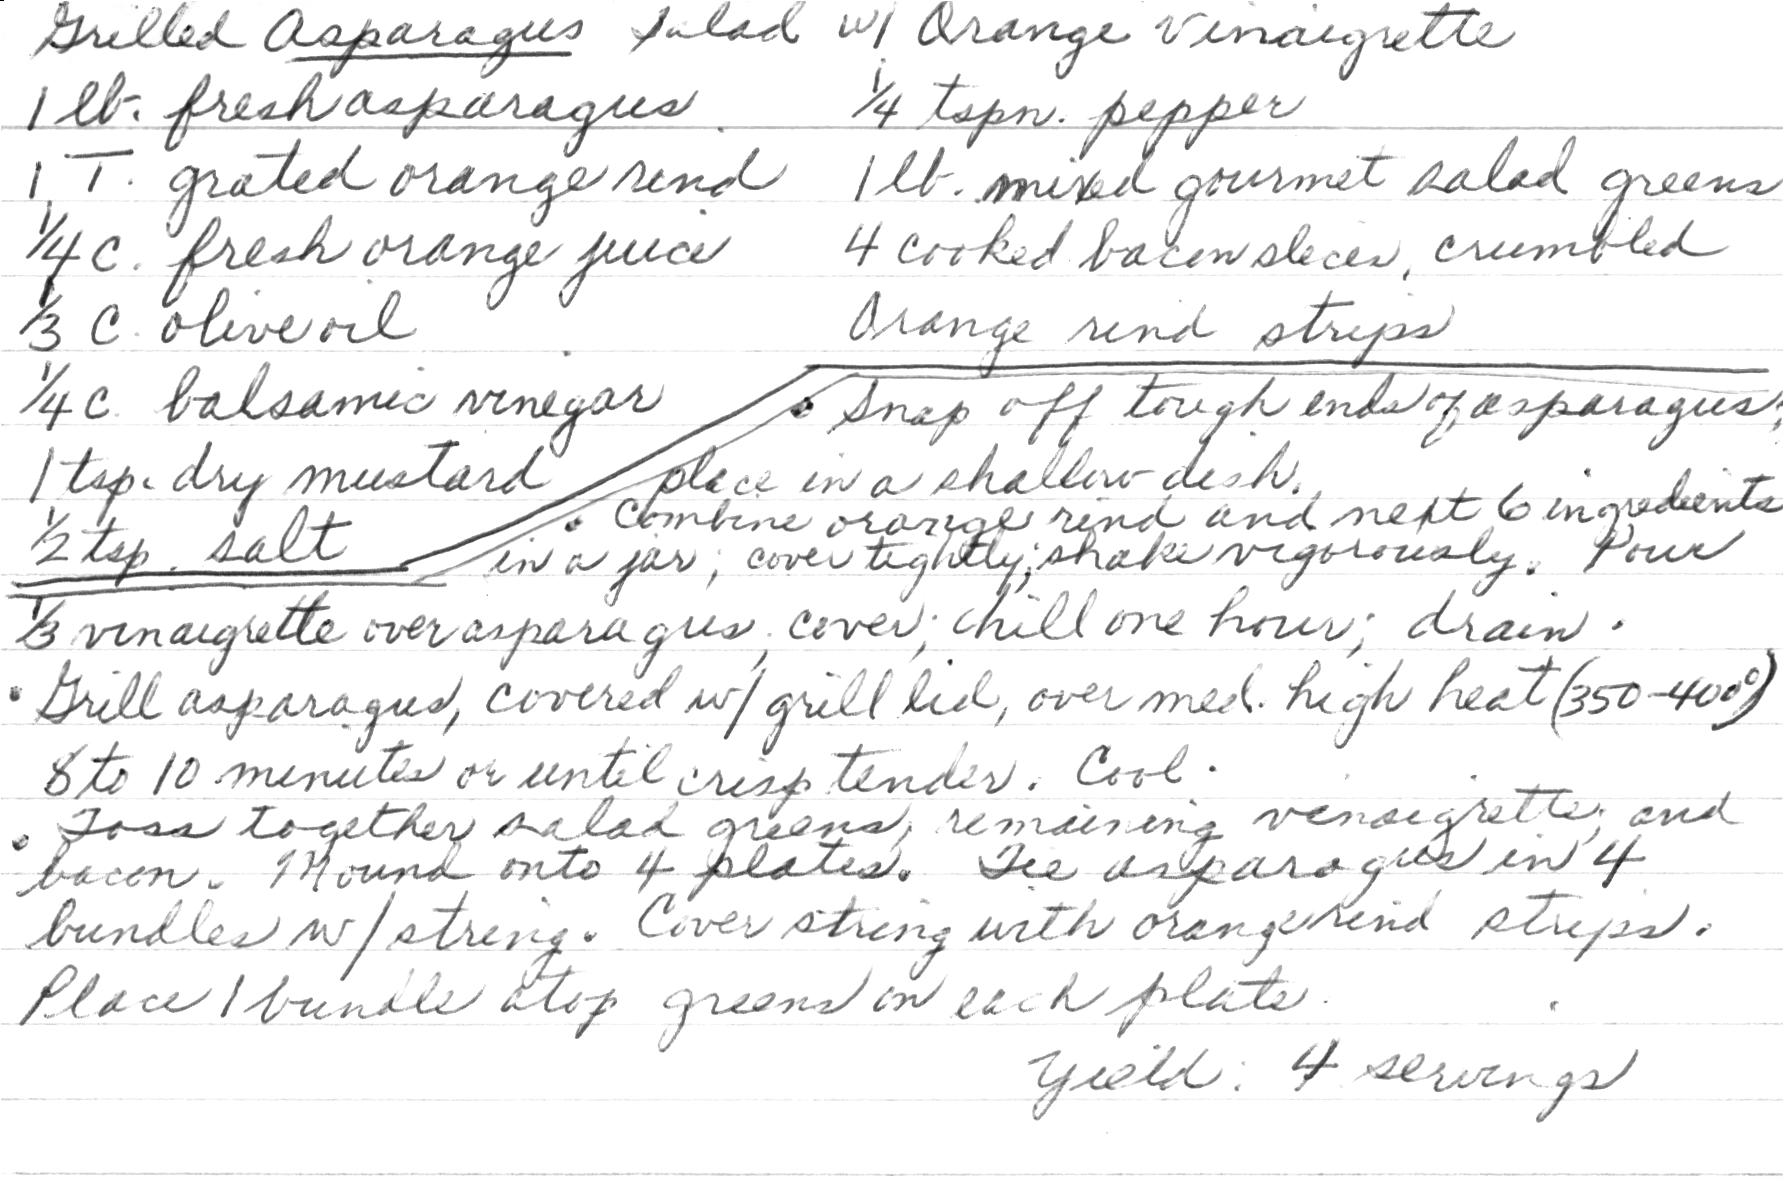 Grilled Asparagus Salad w/ Orange Vinaigrette
1 lb. fresh asparagus
1 T. grated orange rind
1/4 c. fresh orange juice
1/3 C. olive oil
1/4 c balsamic vinegar
1 tsp. dry mustard
1/2 tsp. salt
1/4 tspn. pepper
1 lb. mixed gourmet salad greens
4 cooked bacon slices, crumbled
Orange rind strips
• Snap off tough ends of asparagus;
place in a shallow dish.
• Combine orange rind and next 6 ingredients
in a jar; cover tightly; shake vigorously. Pour
1/3 vinaigrette over asparagus, cover; chill one hour; drain.
• Grill asparagus, covered w/ grill lid, over med. high heat (350-400°)
8 to 10 minutes or until crisp tender. Cool.
• Toss together salad greens, remaining vinaigrette, and
bacon. Mound onto 4 plates. Tie asparagus in 4
bundles w/ string. Cover string with orange rind strips.
Place 1 bundle atop greens on each plate.
Yield: 4 servings